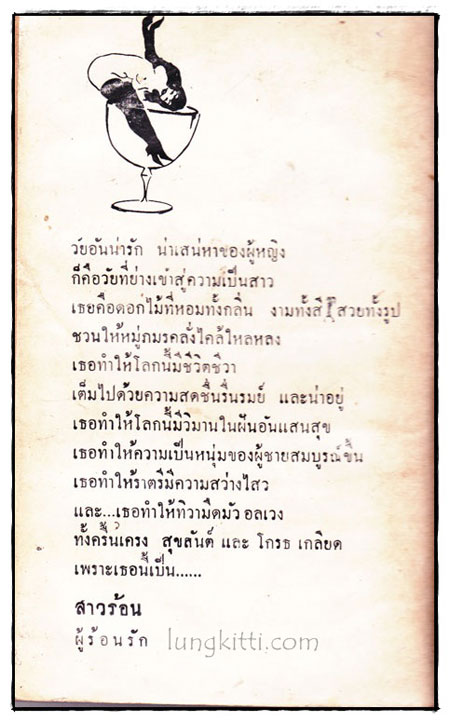 วัยอันน่ารัก น่าเสน่หาของผู้หญิง
ก็คือวัยที่ย่างเข้าสู่ความเป็นสาว
เธอคือดอกไม้ที่หอมทั้งกลิ่น งามทั้งสี สวยทั้งรูป
ชวนให้หมู่ภมรคลั่งไคล้ใหลหลง
เธอทำให้โลกนี้มีชีวิตชีวา
เต็มไปด้วยความสดชื่นรื่นรมย์ และน่าอยู่
เธอทำให้โลกนี้มีวิมานในฝันอันแสนสุข
เธอทำให้ความเป็นหนุ่มของผู้ชายสมบูรณ์ขึ้น
เธอทำให้ราตรีมีความสว่างไสว
และ...เธอทำให้ทิวามืดมัว อลเวง
ทั้งครื้นเครง สุขสันต์ และ โกรธ เกลียด
เพราะเธอนี้เป็น......
สาวร้อน
ผู้ร้อนรัก lungkitti.com